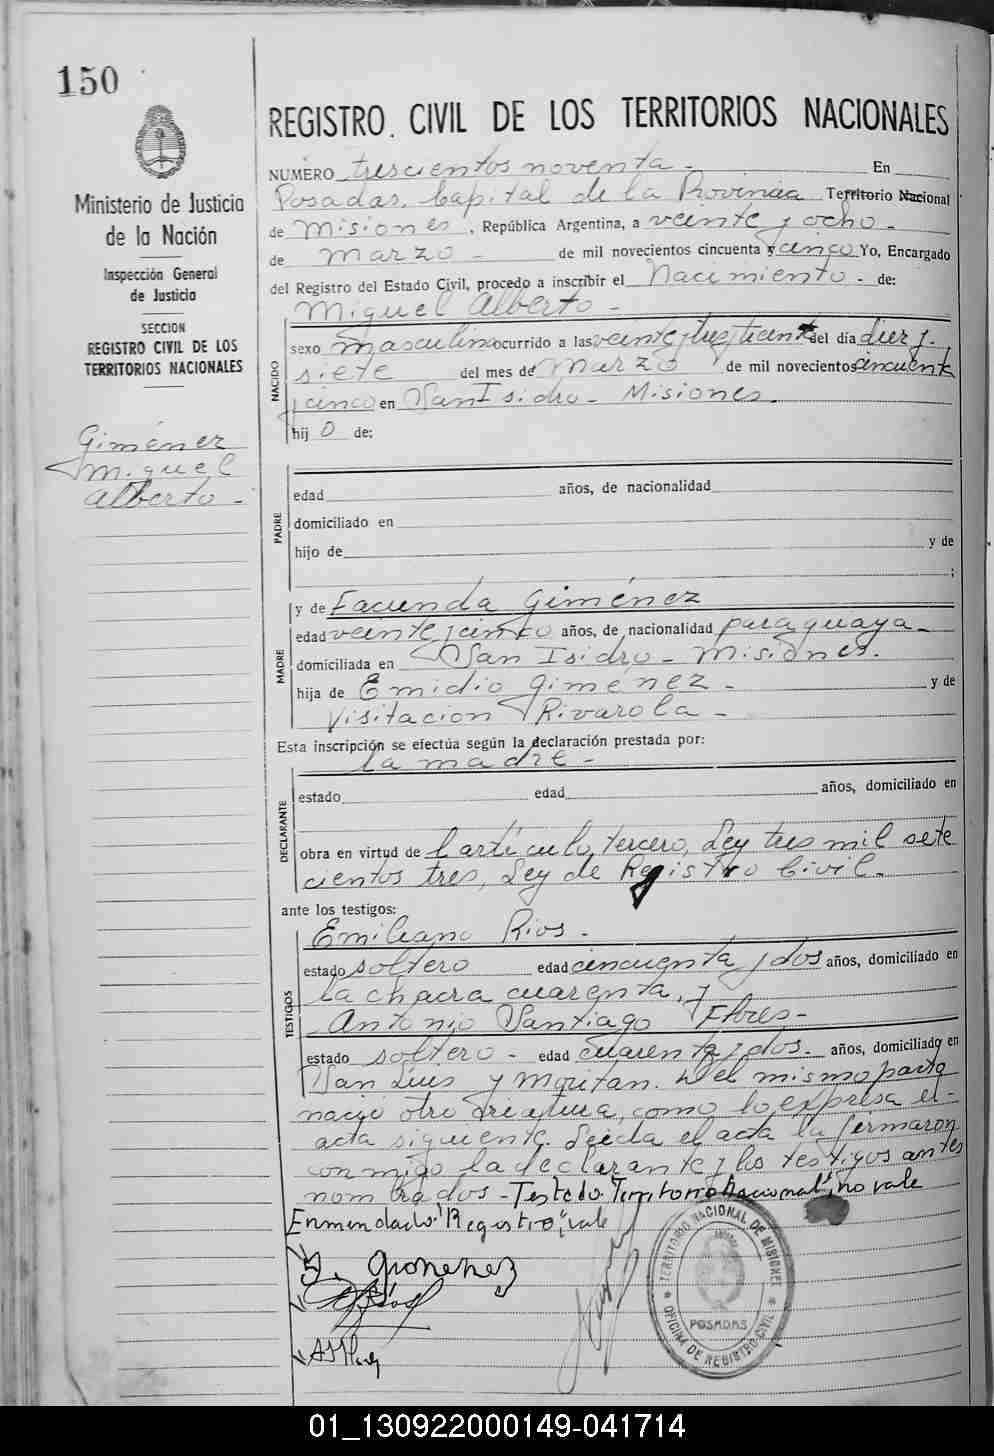 150
Ministerio de Justicia
de la Nación
Inspección General
de Justicia
SECCION
REGISTRO CIVIL DE LOS
TERRITORIOS NACIONALES
Giménez
Miguel
Alberto -
REGISTRO CIVIL DE LOS TERRITORIOS NACIONALES
NUMERO trescientos noventa - En
Posadas, Capital de la Provincia Territorio Nacional
de Misiones, República Argentina, a veinte y ocho -
de marzo - de mil novecientos cincuenta y cinco Yo, Encargado
del Registro del Estado Civil, procedo a inscribir el Nacimiento - de:
Miguel Alberto -
NACIDO
sexo masculino ocurrido a las veinte y tres y treinta del día diez y -
siete del mes de marzo de mil novecientos cincuenta
y cinco en San Isidro - Misiones.
hij o de:
PADRE
edad años, de nacionalidad
domiciliado en
hijo de y de
;
MADRE
y de Facunda Giménez
edad veinte y cinco años, de nacionalidad paraguaya -
domiciliada en San Isidro - Misiones.
hija de Emidio Giménez - y de
Visitacion Rivarola -
Esta inscripción se efectúa según la declaración prestada por:
la madre -
DECLARANTE
estado edad años, domiciliado en
obra en virtud de l artículo tercero, Ley tres mil sete
cientos tres, Ley de Registro Civil -
ante los testigos:
TESTIGOS
Emiliano Rios -
estado soltero edad cincuenta y dos años, domiciliado en
la chacra cuarenta, y
Antonio Santiago Flores -
estado soltero - edad cuarenta y dos - años, domiciliado en
San Luis y Moritan. Del mismo parto
nació otra criatura, como lo expresa el -
acta siguiente. Leida el acta la firmaron
conmigo la declarante y los testigos antes
nombrados - Testado "Territorio Nacional", no vale
Enmendado "Registro", vale
F. Gimenez
TERRITORIO NACIONAL DE MISIONES
POSADAS
OFICINA DE REGISTRO CIVIL
01_130922000149-041714